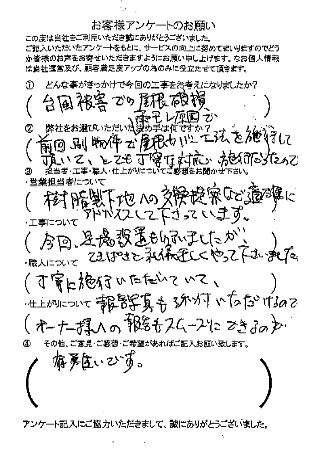 お客様アンケートのお願い
この度は当社をご利用いただき誠にありがとうございました。
ご記入いただいたアンケートをもとに、サービスの向上に努めてまいりますのでどう
か皆様のお声をお寄せいただきますようにお願い申し上げます。なお個人情報
は当社運営及び、顧客満足度アップの為のみに役立たせて頂きます。
① どんな事がきっかけで今回の工事をお考えになりましたか?
台風被害での屋根破損
雨もり原因で
② 弊社をお選びいただいた決め手は何ですか?
前回別物件で屋根カバー工法を施行して
頂いて、とても丁寧な対応、施行だったので
③ 担当者・工事・職人・仕上がりについてご感想をお聞かせ下さい。
・営業担当者について
樹脂製下地への交換提案など適確に
アドバイスして下さっています。
・工事について
今回、足場設置もありましたが、
てきぱきと礼儀正しくやって下さいました
・職人について
丁寧に施行いただいていて、
・仕上がりについて 報告写真も添付いただけるので
オーナー様への報告もスムーズにできるので
④ その他、ご意見・ご感想・ご希望があればご記入お願い致します。
有難いです。
アンケート記入にご協力いただきまして、誠にありがとうございました。